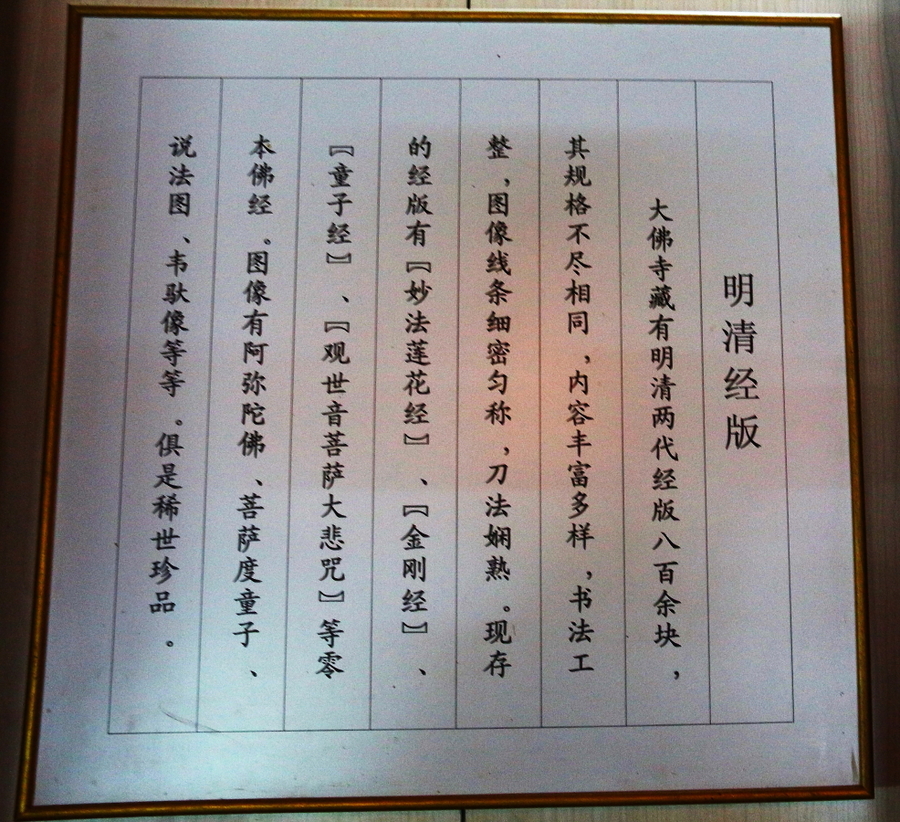 明清经版
大佛寺藏有明清两代经版八百余块，
其规格不尽相同，内容丰富多样，书法工
整，图像线条细密匀称，刀法娴熟。现存
的经版有【妙法莲花经】、【金刚经】、
【童子经】、【观世音菩萨大悲咒】等零
本佛经。图像有阿弥陀佛、菩萨度童子、
说法图、韦驮像等等。俱是稀世珍品。